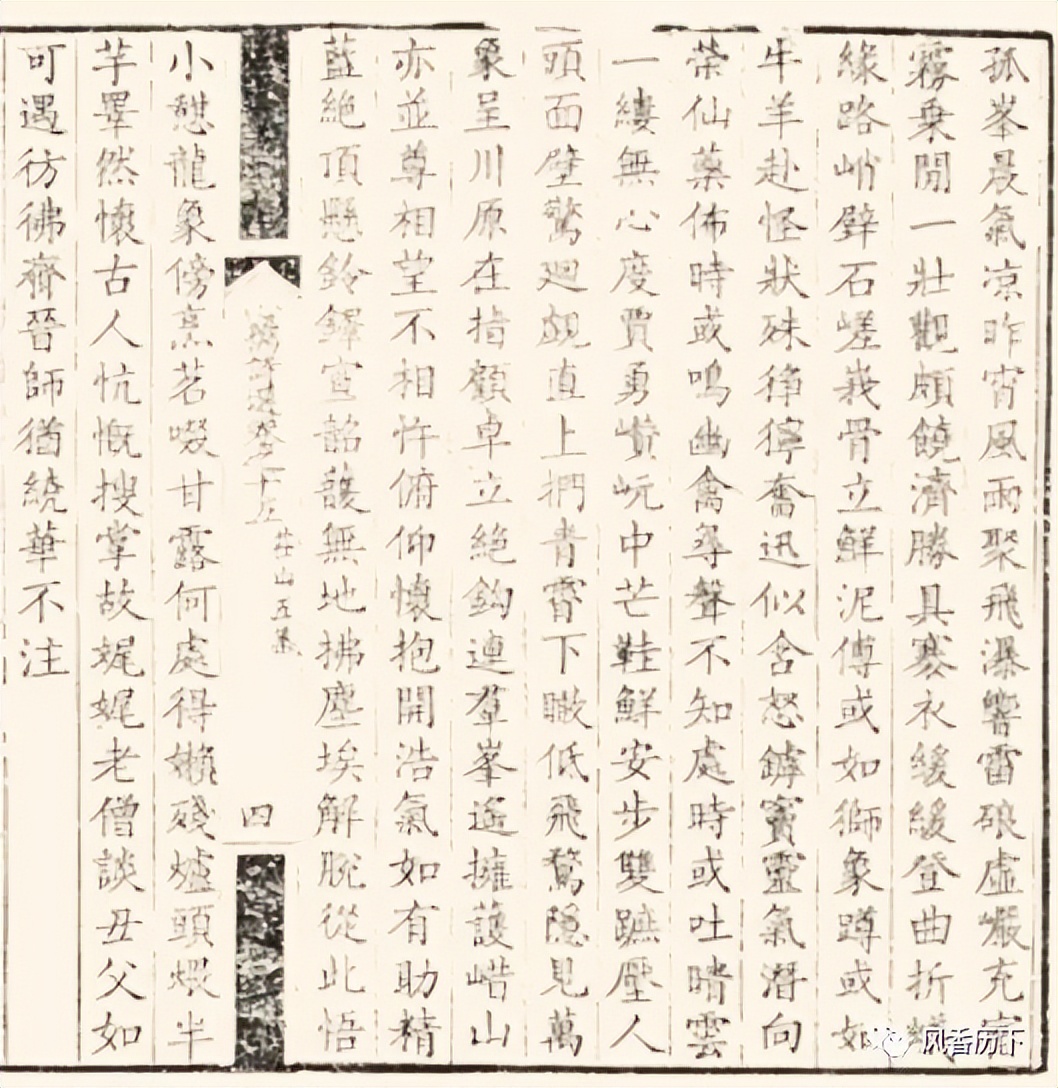 孤峯晨氣凉昨宵風雨聚飛瀑響雷硠虛巖充
霧乗閒一壯觀頗饒濟勝具褰衣緩緩登曲折
緣路峭壁石嵯峩骨立鮮泥傅或如獅象蹲或如
牛羊赴怪狀殊猙獰奮迅似含怒罅竇靈氣潛向
榮仙藥佈時或鳴幽禽尋聲不知處時或吐晴雲
一縷無心度賈勇岏中芒鞋鮮安步雙蹠壓人
頭面壁驚廻覷直上捫青霄下瞰低飛鶩隱見萬
象呈川原在指顧卓立絶鈎連羣峯遙擁護峿山
亦並尊相望不相忤俯仰懷抱開浩氣如有助精
藍絶頂懸鈴鐸宣韶頀無地拂塵埃解脫從此悟
山五
四
小憇龍象傍烹茗啜甘露何處得嬾殘爐頭煨半
芋睪然懷古人忼慨搜掌故娓娓老僧談丑父如
可遇彷彿齊晉師猶繞華不注
风香历下